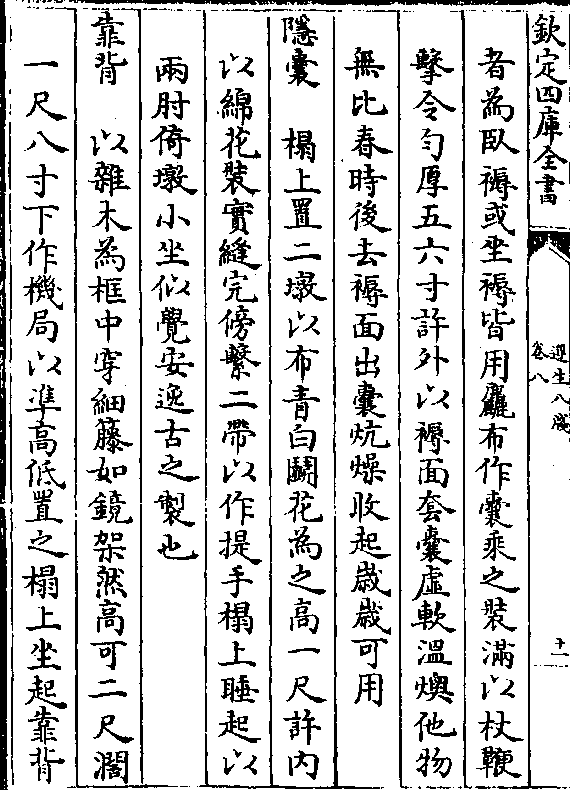 欽定四庫全書
遵生八牋
卷八
十一
者為臥褥或坐褥皆用麤布作囊乘之裝滿以杖鞭
擊令勻厚五六寸許外以褥面套囊虛軟溫燠他物
無比春時後去褥面出囊炕燥收起歲歲可用
隱囊　榻上置二墩以布青白鬭花為之高一尺許内
以綿花裝實縫完傍繫二帶以作提手榻上睡起以
兩肘倚墩小坐似覺安逸古之製也
靠背　以雜木為框中穿細籐如鏡架然高可二尺濶
一尺八寸下作機局以準高低置之榻上坐起靠背